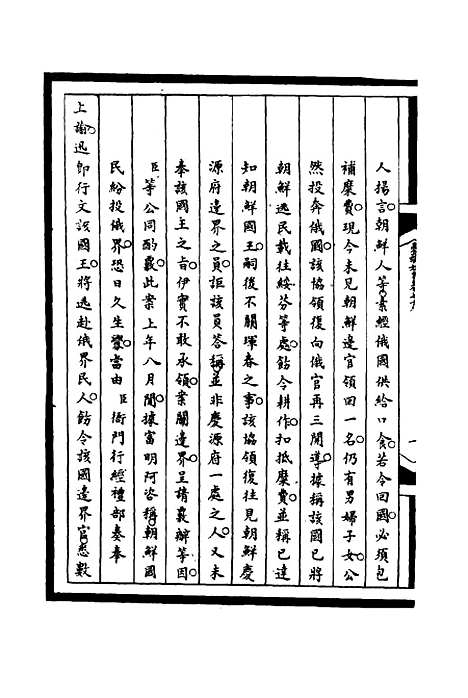 人揚言。朝鮮人等。業經俄國供給口食。若令回國。必須包
補糜費。現今未見朝鮮邊官領回一名。仍有男婦子女。公
然投奔俄國。該協領復向俄官再三開導。據稱該國已將
朝鮮逃民載往綏芬等處。飭令耕作。扣抵糜費。並稱已達
知朝鮮國王。嗣後不關琿春之事。該協領復往見朝鮮慶
源府邊界之員。詎該員答稱。並非慶源府一處之人。又未
奉該國王之旨。伊實不敢承領。案關邊界。呈請覈辦等因。
臣等公同酌覈。此案上年八月間。據富明阿咨稱。朝鮮國
民紛投俄界。恐日久生釁。當由臣衙門行經禮部奏奉
上諭。迅即行文該國王。將逃赴俄界民人。飭令該國邊界官悉數
一